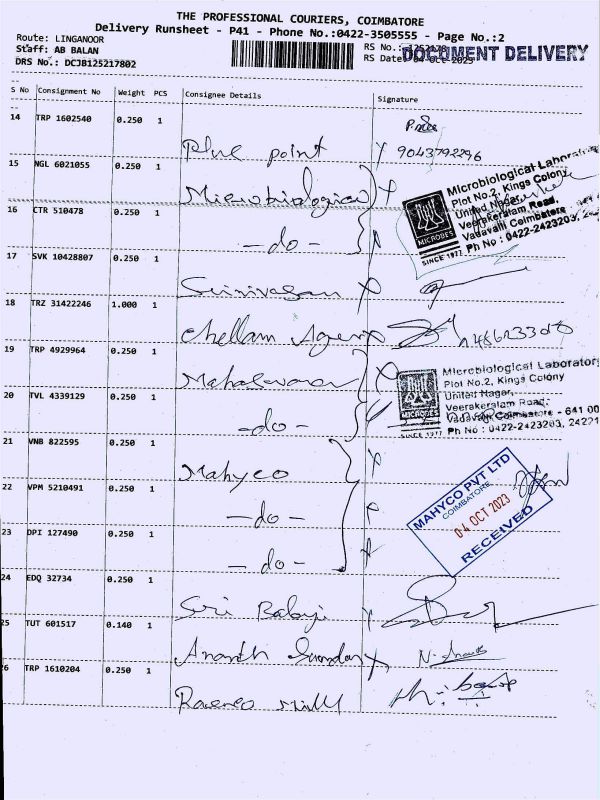 THE PROFESSIONAL COURIERS, COIMBATORE
Delivery Runsheet - P41 - Phone No.:0422-3505555 - Page No.:2
Route: LINGANOOR
Staff: AB BALAN
DRS No.: DCJB125217802
RS No.:
RS Date: 04-Oct-2023
DOCUMENT DELIVERY
S No Consignment No Weight PCS Consignee Details Signature
14 TRP 1602540 0.250 1
Blue point 9043792296
15 NGL 6021055 0.250 1
Microbiological
16 CTR 510478 0.250 1
- do -
Microbiological Laboratory
Plot No.2, Kings Colony,
United Nagar,
Veerakeralam Road,
Vadavalli Coimbatore
Ph No : 0422-2423203,
MICROBES
SINCE 1977
17 SVK 10428807 0.250 1
Srinivasan
18 TRZ 31422246 1.000 1
Chellam Agency
19 TRP 4929964 0.250 1
20 TVL 4339129 0.250 1
- do -
Microbiological Laboratory
Plot No.2, Kings Colony
United Nagar,
Veerakeralam Road,
Vadavalli Coimbatore - 641 00
Ph No : 0422-2423203, 24221
MICROBES
SINCE 1977
21 VNB 822595 0.250 1
Mahyco
22 VPM 5210491 0.250 1
- do -
23 DPI 127490 0.250 1
- do -
MAHYCO PVT LTD
COIMBATORE
04 OCT 2023
RECEIVED
24 EDQ 32734 0.250 1
Sri Balaji
25 TUT 601517 0.140 1
Ananth Sundar
26 TRP 1610204 0.250 1